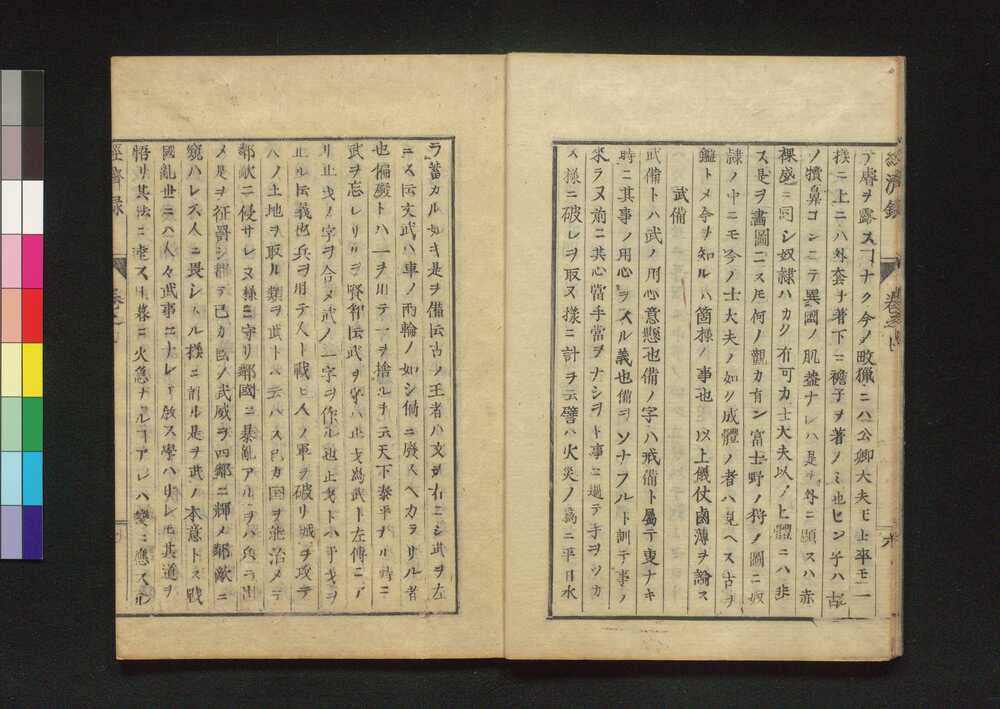 經濟錄
卷之
六
テ膚ヲ露スヿナク今ノ畋獵ニハ公卿大夫モ士卒モ一
樣ニ上ニハ外套ヲ著下ニ襜子ヲ著ノミ也ヒン子ハ古
ノ犢鼻コンニテ異國ノ肌蓋ナレハ是ヲ外ニ顯スハ赤
裸盛ニ同シ奴隸ハカク有可カ士大夫以ノ上體ニハ非
ス是ヲ畫圖ニスル何ノ觀カ有ン富士野ノ狩ノ圖ニ奴
隸ノ中ニモ今ノ士大夫ノ如ク成體ノ者ハ見ヘス古ヲ
鑑トメ今ヲ知ルハ箇樣ノ事也以上儀仗鹵薄ヲ論ス
武備
武備トハ武ノ用心意懸也備ノ字ハ戒備ト屬テ東ナキ
時ニ其事ノ用心ヲスル義也備ヲソナフルト訓テ事ノ
來ラヌ前ニ其心當手當ヲナシヲキ事ニ過テ手ヲツカ
ス樣ニ破レヲ取ヌ樣ニ計ヲ云譬ハ火災ノ爲ニ平日水
ヲ蓄カル如キ是ヲ備ト云古ノ王者ハ文ヲ右ニシ武ヲ左
ニス云文武ハ車ノ兩輪ノ如シ偏ニ廢スヘカラサル者
也偏廢トハ一ヲ用テ一ヲ捨ルヲ云天下泰平ヲル時ニ
武ヲ忘レサリヲ賢智ト云武ヲ字ハ止戈爲武ト左傳ニア
リ止戈ノ字ヲ合メ武ノ一字ヲ作ル也止戈トハ干戈ヲ
止ル云義也兵ヲ用テ人ト戰ヒ人ノ軍ヲ破リ城ヲ攻テ
人ノ土地ヲ取ル類ヲ武トハ云ハス只カ国ヲ能治メテ
鄰敵ニ侵サレヌ樣ニ守リ鄰國ニ暴亂アルヲハ兵ヲ出
メ是ヲ征罸シ程テ己カ國ノ武威ヲ四鄰ニ輝メ鄰敵ニ
窺ハレス人ニ畏シムル樣ニ計ル是ヲ武ノ本意トス戰
國亂世ニハ人々武事ニナレテ敎ス學ハサレモ其道ヲ
悟リ其法ニ達ス旦暮ニ火急ナルヿアレハ變ニ應スル
經濟錄
卷之